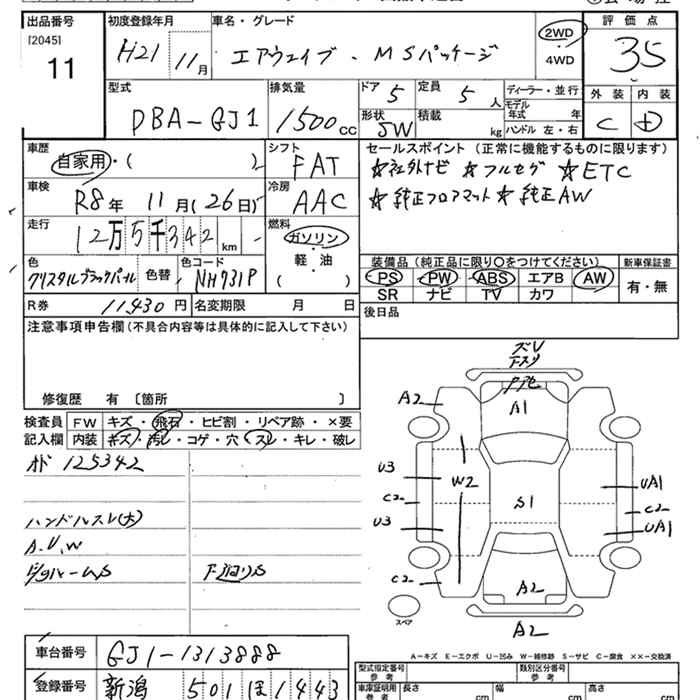 出品番号
[2045]
11
初度登録年月
H21 11月
車名・グレード
エアウェイブ・MSパッケージ
2WD
・
4WD
評価点
3.5
外装 内装
C D
型式
DBA-GJ1
排気量
1500cc
ドア 5
定員 5人
形状 SW
積載 kg
ディーラー・並行
モデル年式 年
ハンドル 左・右
車歴
自家用・( )
シフト
FAT
車検
R8年 11月(26日)
冷房
AAC
走行
12万5千342km
燃料
ガソリン
・
軽・油
( )
色
クリスタルブラックパール
色替
色コード
NH731P
R券 11430円
名変期限 月 日
セールスポイント (正常に機能するものに限ります)
☆社外ナビ ☆フルセグ ☆ETC
☆純正フロアマット☆純正AW
装備品(純正品に限り○をつけてください)
新車保証書
PS PW ABS エアB AW
有・無
SR ナビ TV カワ
後日品
注意事項申告欄(不具合内容等は具体的に記入して下さい)
修復歴 有 〔箇所 〕
検査員
記入欄
FW キズ・飛石・ヒビ割・リペア跡・×要
内装 キズ・汚レ・コゲ・穴・スレ・キレ・破レ
オド 125342
ハンドルスレ(大)
A.U.W
下廻りS
A2
A1
U3
W2
C2
U3
S1
UA1
C2
UA1
C2
A2
A2
スペア
A-キズ E-エクボ U-凹み W-補修跡 S-サビ C-腐食 XX-交換済
車台番号 GJ1-1313888
登録番号 新潟 501 ほ 1443
型式指定番号
参考
類別区分番号
参考
車庫証明用
参考
長さ cm
幅 cm
高さ cm